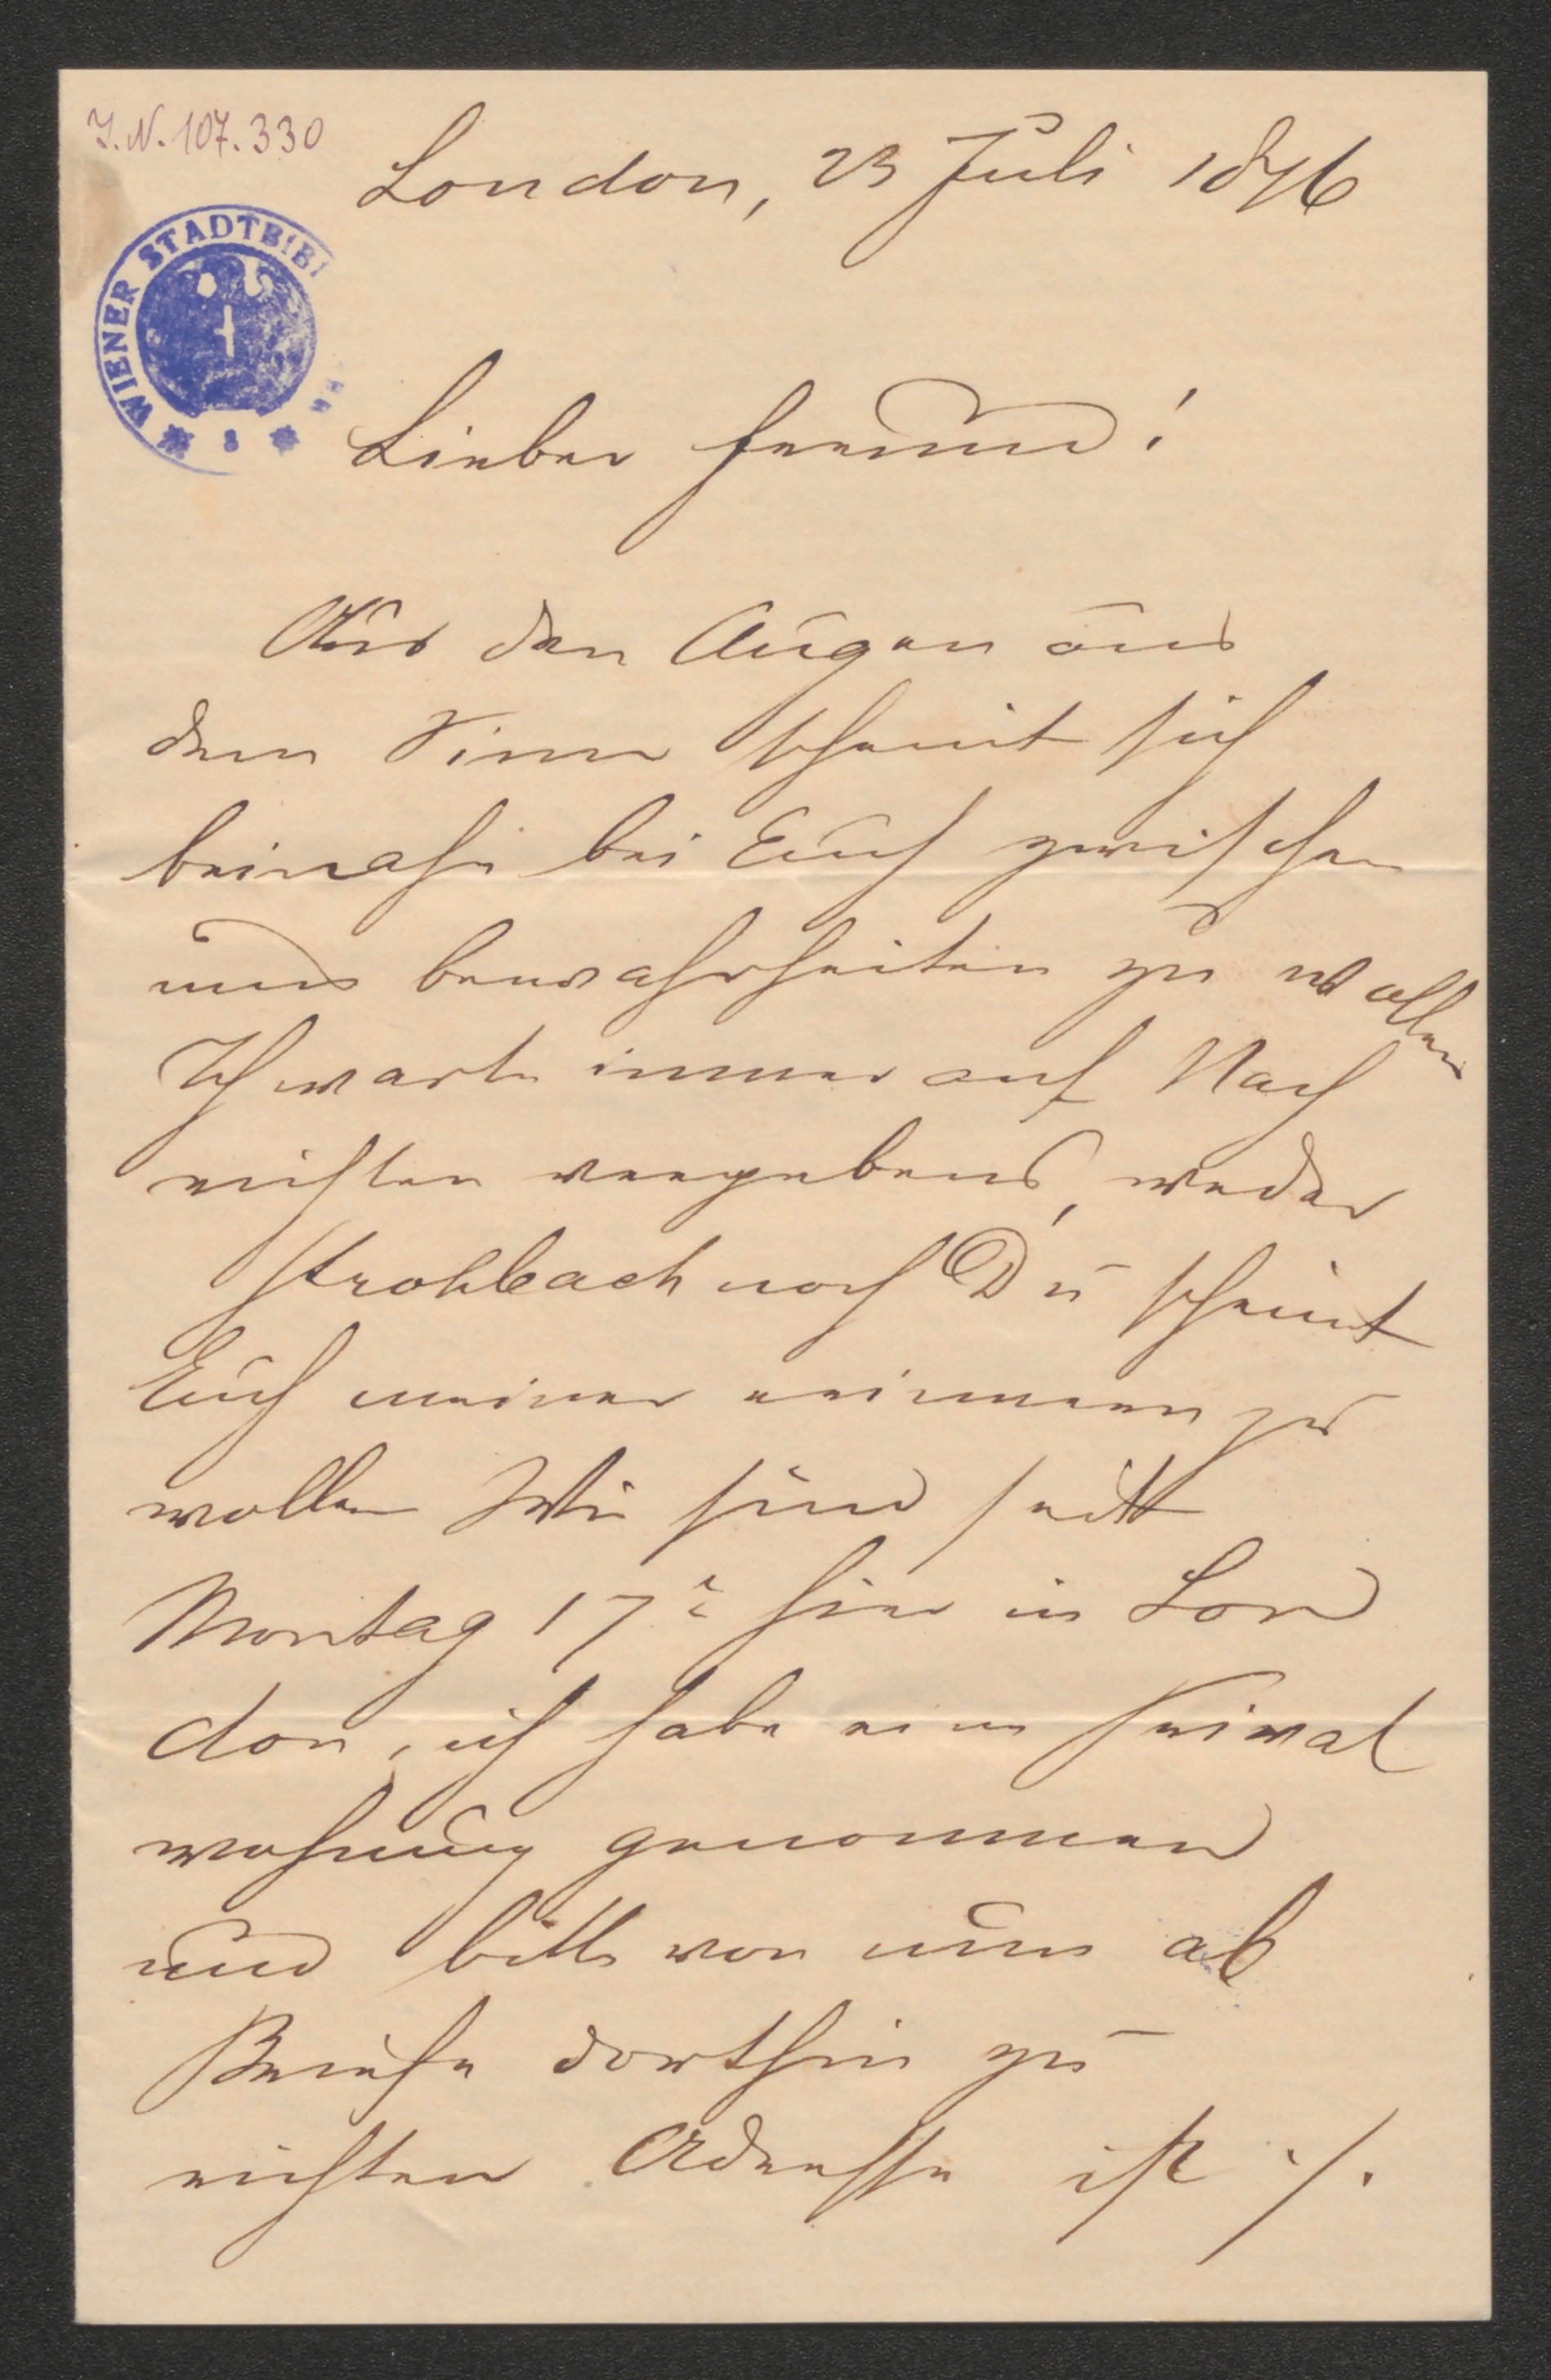 I.N. 107.330
London, 23 Juli 1876
WIENER STADTBIBL
8
Lieber Freund!
Aus den Augen aus
dem Sinn scheint sich
beinahe bei Euch zwischen
uns bewahrheiten zu wollen
Ich warte immer auf Nach
richten vergebens, weder
Strohbach noch Du scheint
Euch meiner erinnern zu
wollen Wir sind seit
Montag 17t hier in Lon
don, ich habe eine Privat
wohnung genommen
und bitte von nun ab
Briefe dorthin zu
richten Adresse ist ./.